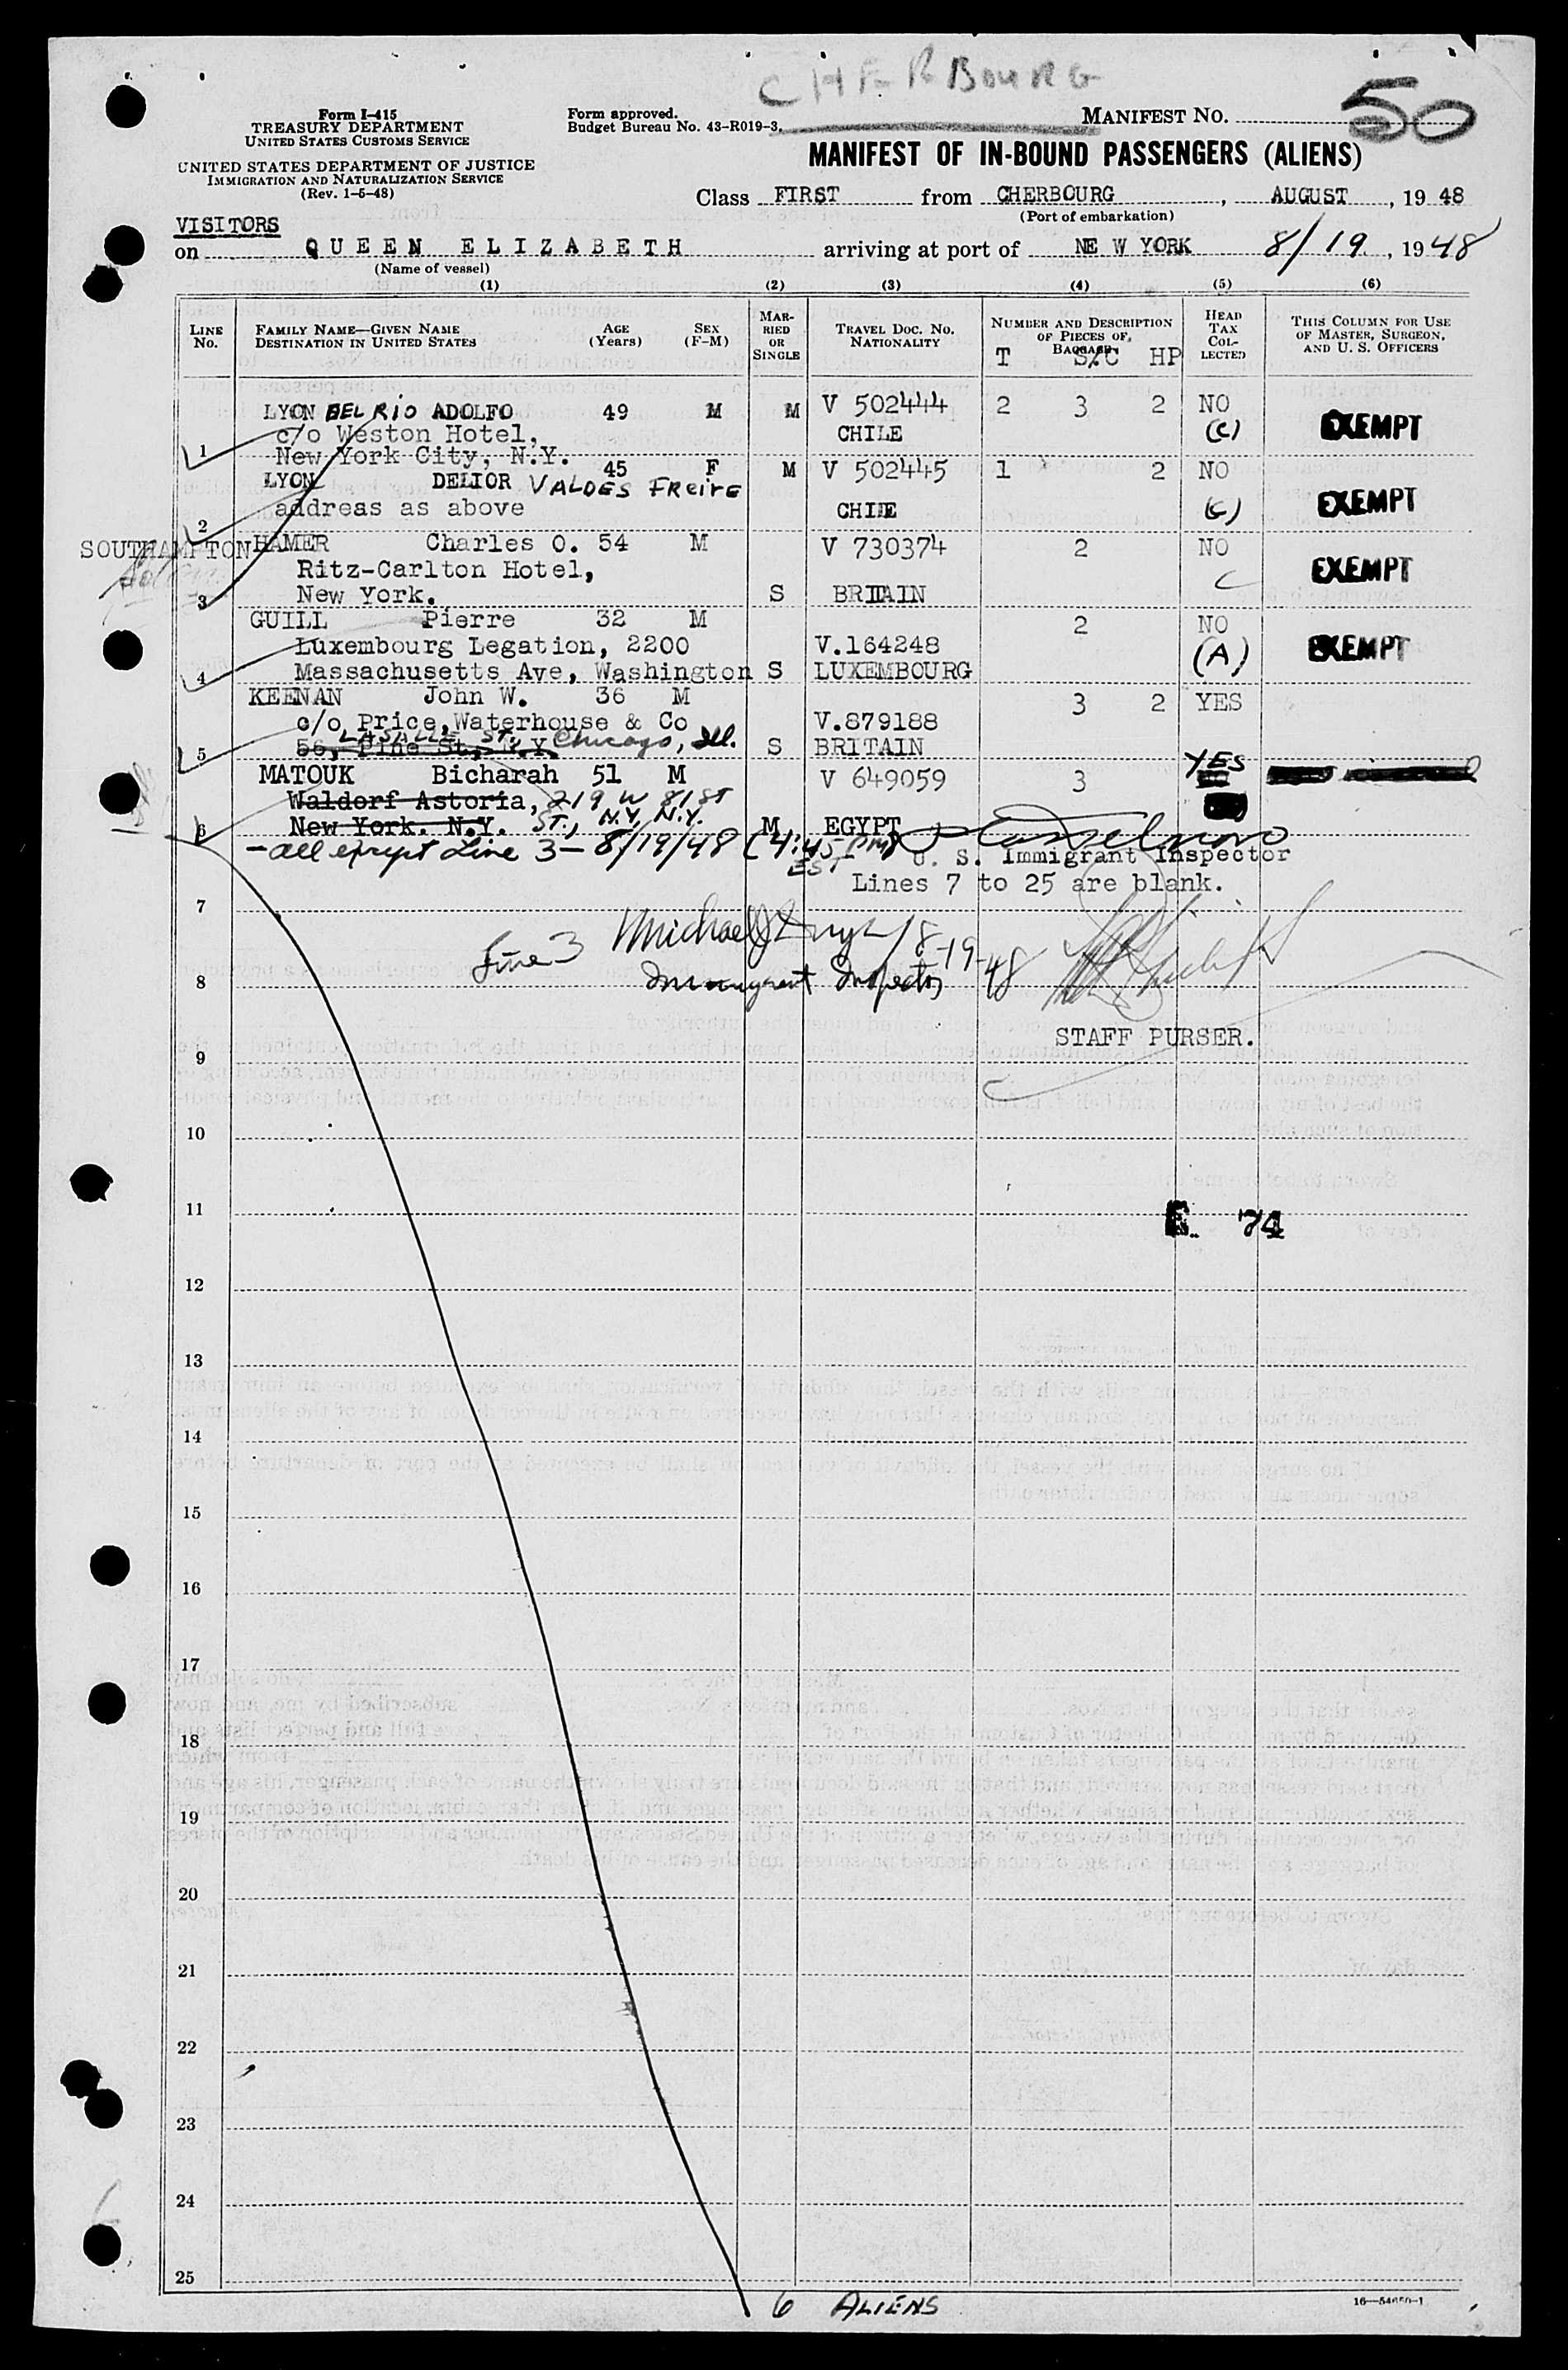 CHERBOURG
50
Form I-415
TREASURY DEPARTMENT
UNITED STATES CUSTOMS SERVICE
UNITED STATES DEPARTMENT OF JUSTICE
IMMIGRATION AND NATURALIZATION SERVICE
(Rev. 1-5-48)
Form approved.
Budget Bureau No. 43-R019-3.
MANIFEST NO.
MANIFEST OF IN-BOUND PASSENGERS (ALIENS)
Class FIRST from CHERBOURG, AUGUST, 19 48
(Port of embarkation)
VISITORS
on QUEEN ELIZABETH arriving at port of NEW YORK 8/19, 19 48
(Name of vessel)
(1) (2) (3) (4) (5) (6)
LINE No.
FAMILY NAME—GIVEN NAME
DESTINATION IN UNITED STATES
AGE (Years)
SEX (F-M)
MARRIED OR SINGLE
TRAVEL DOC. NO.
NATIONALITY
NUMBER AND DESCRIPTION OF PIECES OF BAGGAGE
T S/C HP
HEAD TAX COLLECTED
THIS COLUMN FOR USE OF MASTER, SURGEON, AND U. S. OFFICERS
LYON DEL RIO ADOLFO 49 M M V 502444 2 3 2 NO
c/o Weston Hotel, CHILE (C) EXEMPT
1 New York City, N.Y.
LYON DELIOR VALDES FREIRE 45 F M V 502445 1 2 NO
2 address as above CHILE (C) EXEMPT
SOUTHAMPTON HAMER Charles O. 54 M V 730374 2 NO
Ritz-Carlton Hotel, C EXEMPT
3 New York. S BRITAIN
GUILL Pierre 32 M 2 NO
Luxembourg Legation, 2200 V.164248 (A) EXEMPT
4 Massachusetts Ave, Washington S LUXEMBOURG
KEENAN John W. 36 M 3 2 YES
c/o Price, Waterhouse & Co V.879188
LASALLE ST.,
5 56, Pine St, N.Y. Chicago, Ill. S BRITAIN
MATOUK Bicharah 51 M V 649059 3 YES
Waldorf Astoria, 219 W 81 ST
6 New York. N.Y. ST., N.Y. N.Y. M EGYPT
- all except Line 3 - 8/19/48 (4:45 PM)
EST
U. S. Immigrant Inspector
Lines 7 to 25 are blank.
7
Line 3 Michael 8-19-48
8 Immigrant Inspector
STAFF PURSER.
9
10
11
E. 74
12
13
14
15
16
17
18
19
20
21
22
23
24
25
6 ALIENS